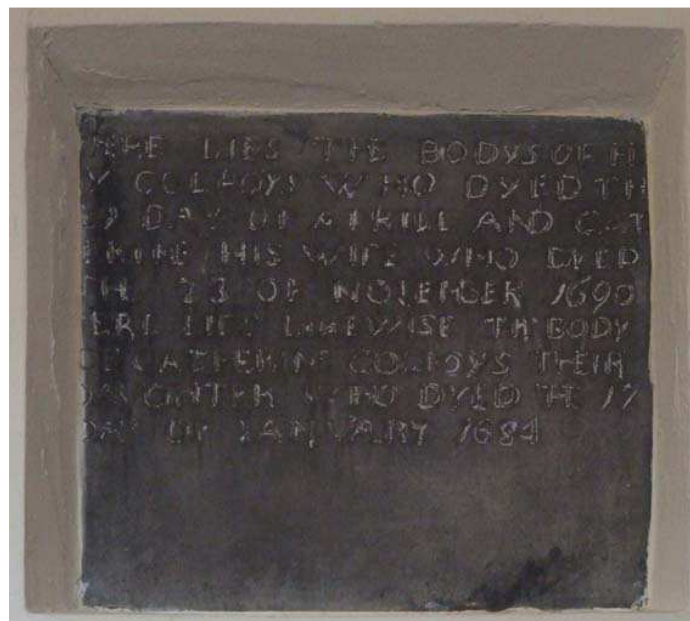 HERE LIES THE BODYS OF H
Y COLFOYS WHO DYED TH
DAY OF APRILL AND CAT
ERINE HIS WIFE WHO DYED
TH 23 OF NOVEMBER 1690
HERE LIES LIKEWISE TH BODY
OF CATHERIN COLFOYS THEIR
DAUGHTER WHO DYED TH 17
DAY OF IANUARY 1684